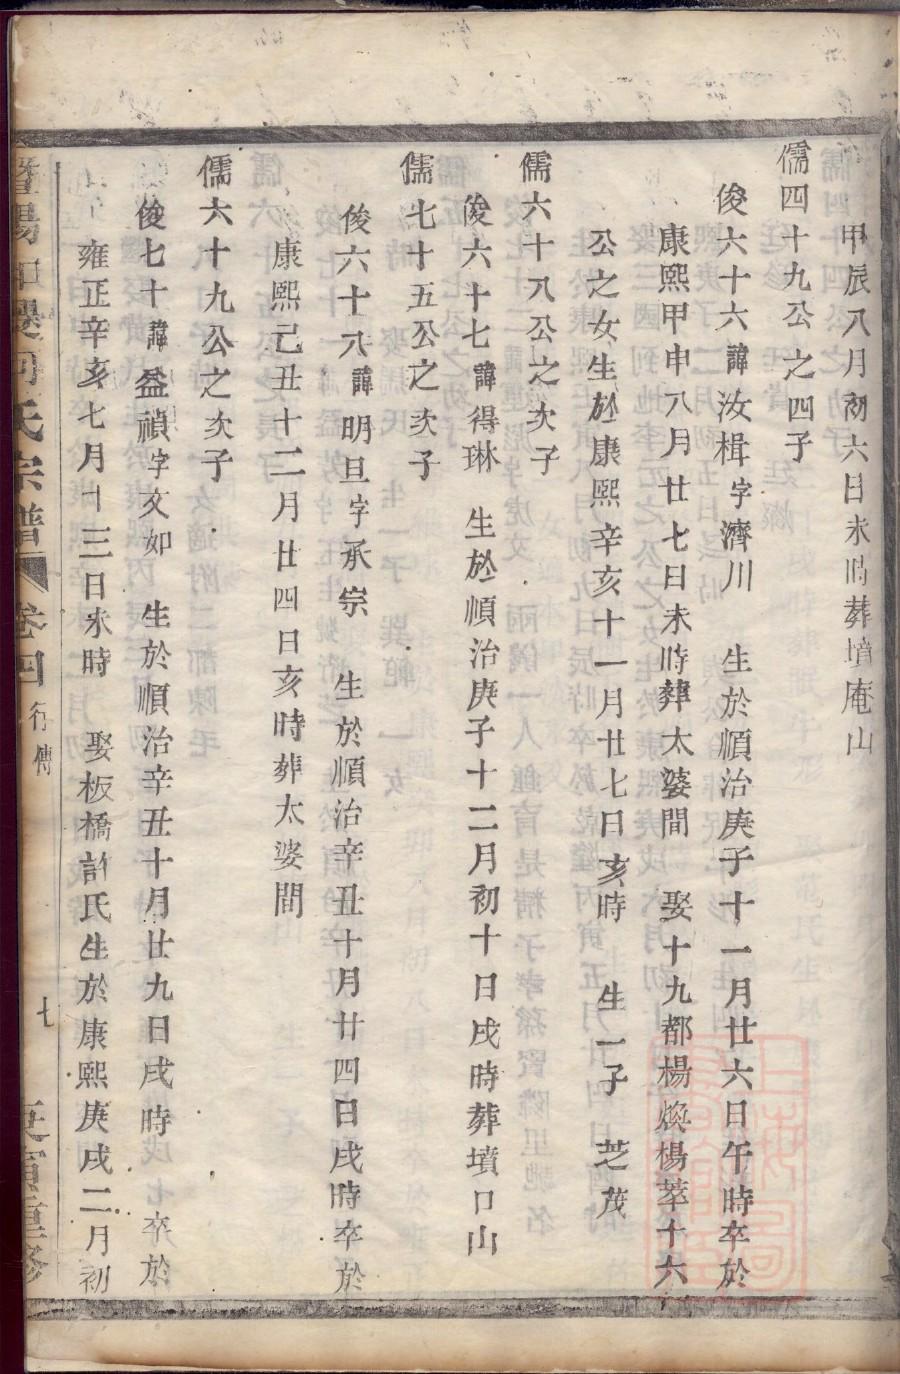 甲辰八月初六日未時葬墳庵山
儒四十九公之四子
俊六十六諱汝楫字濟川　生於順治庚子十一月廿六日午時卒於
康熙甲申八月廿七日未時葬太婆間　娶十九都楊煥楊萃十六
公之女生於康熙辛亥十一月廿七日亥時　生一子　芝茂
儒六十八公之次子
俊六十七諱得琳　生於順治庚子十二月初十日戌時葬墳口山
儒七十五公之次子
俊六十八諱明旦字承宗　生於順治辛丑十月廿四日戌時卒於
康熙己丑十二月廿四日亥時葬太婆間
儒六十九公之次子
俊七十諱益禎字文如　生於順治辛丑十月廿九日戌時　卒於
雍正辛亥七月十三日未時　娶板橋許氏生於康熙庚戌二月初
氏宗譜　卷四　行傳　七